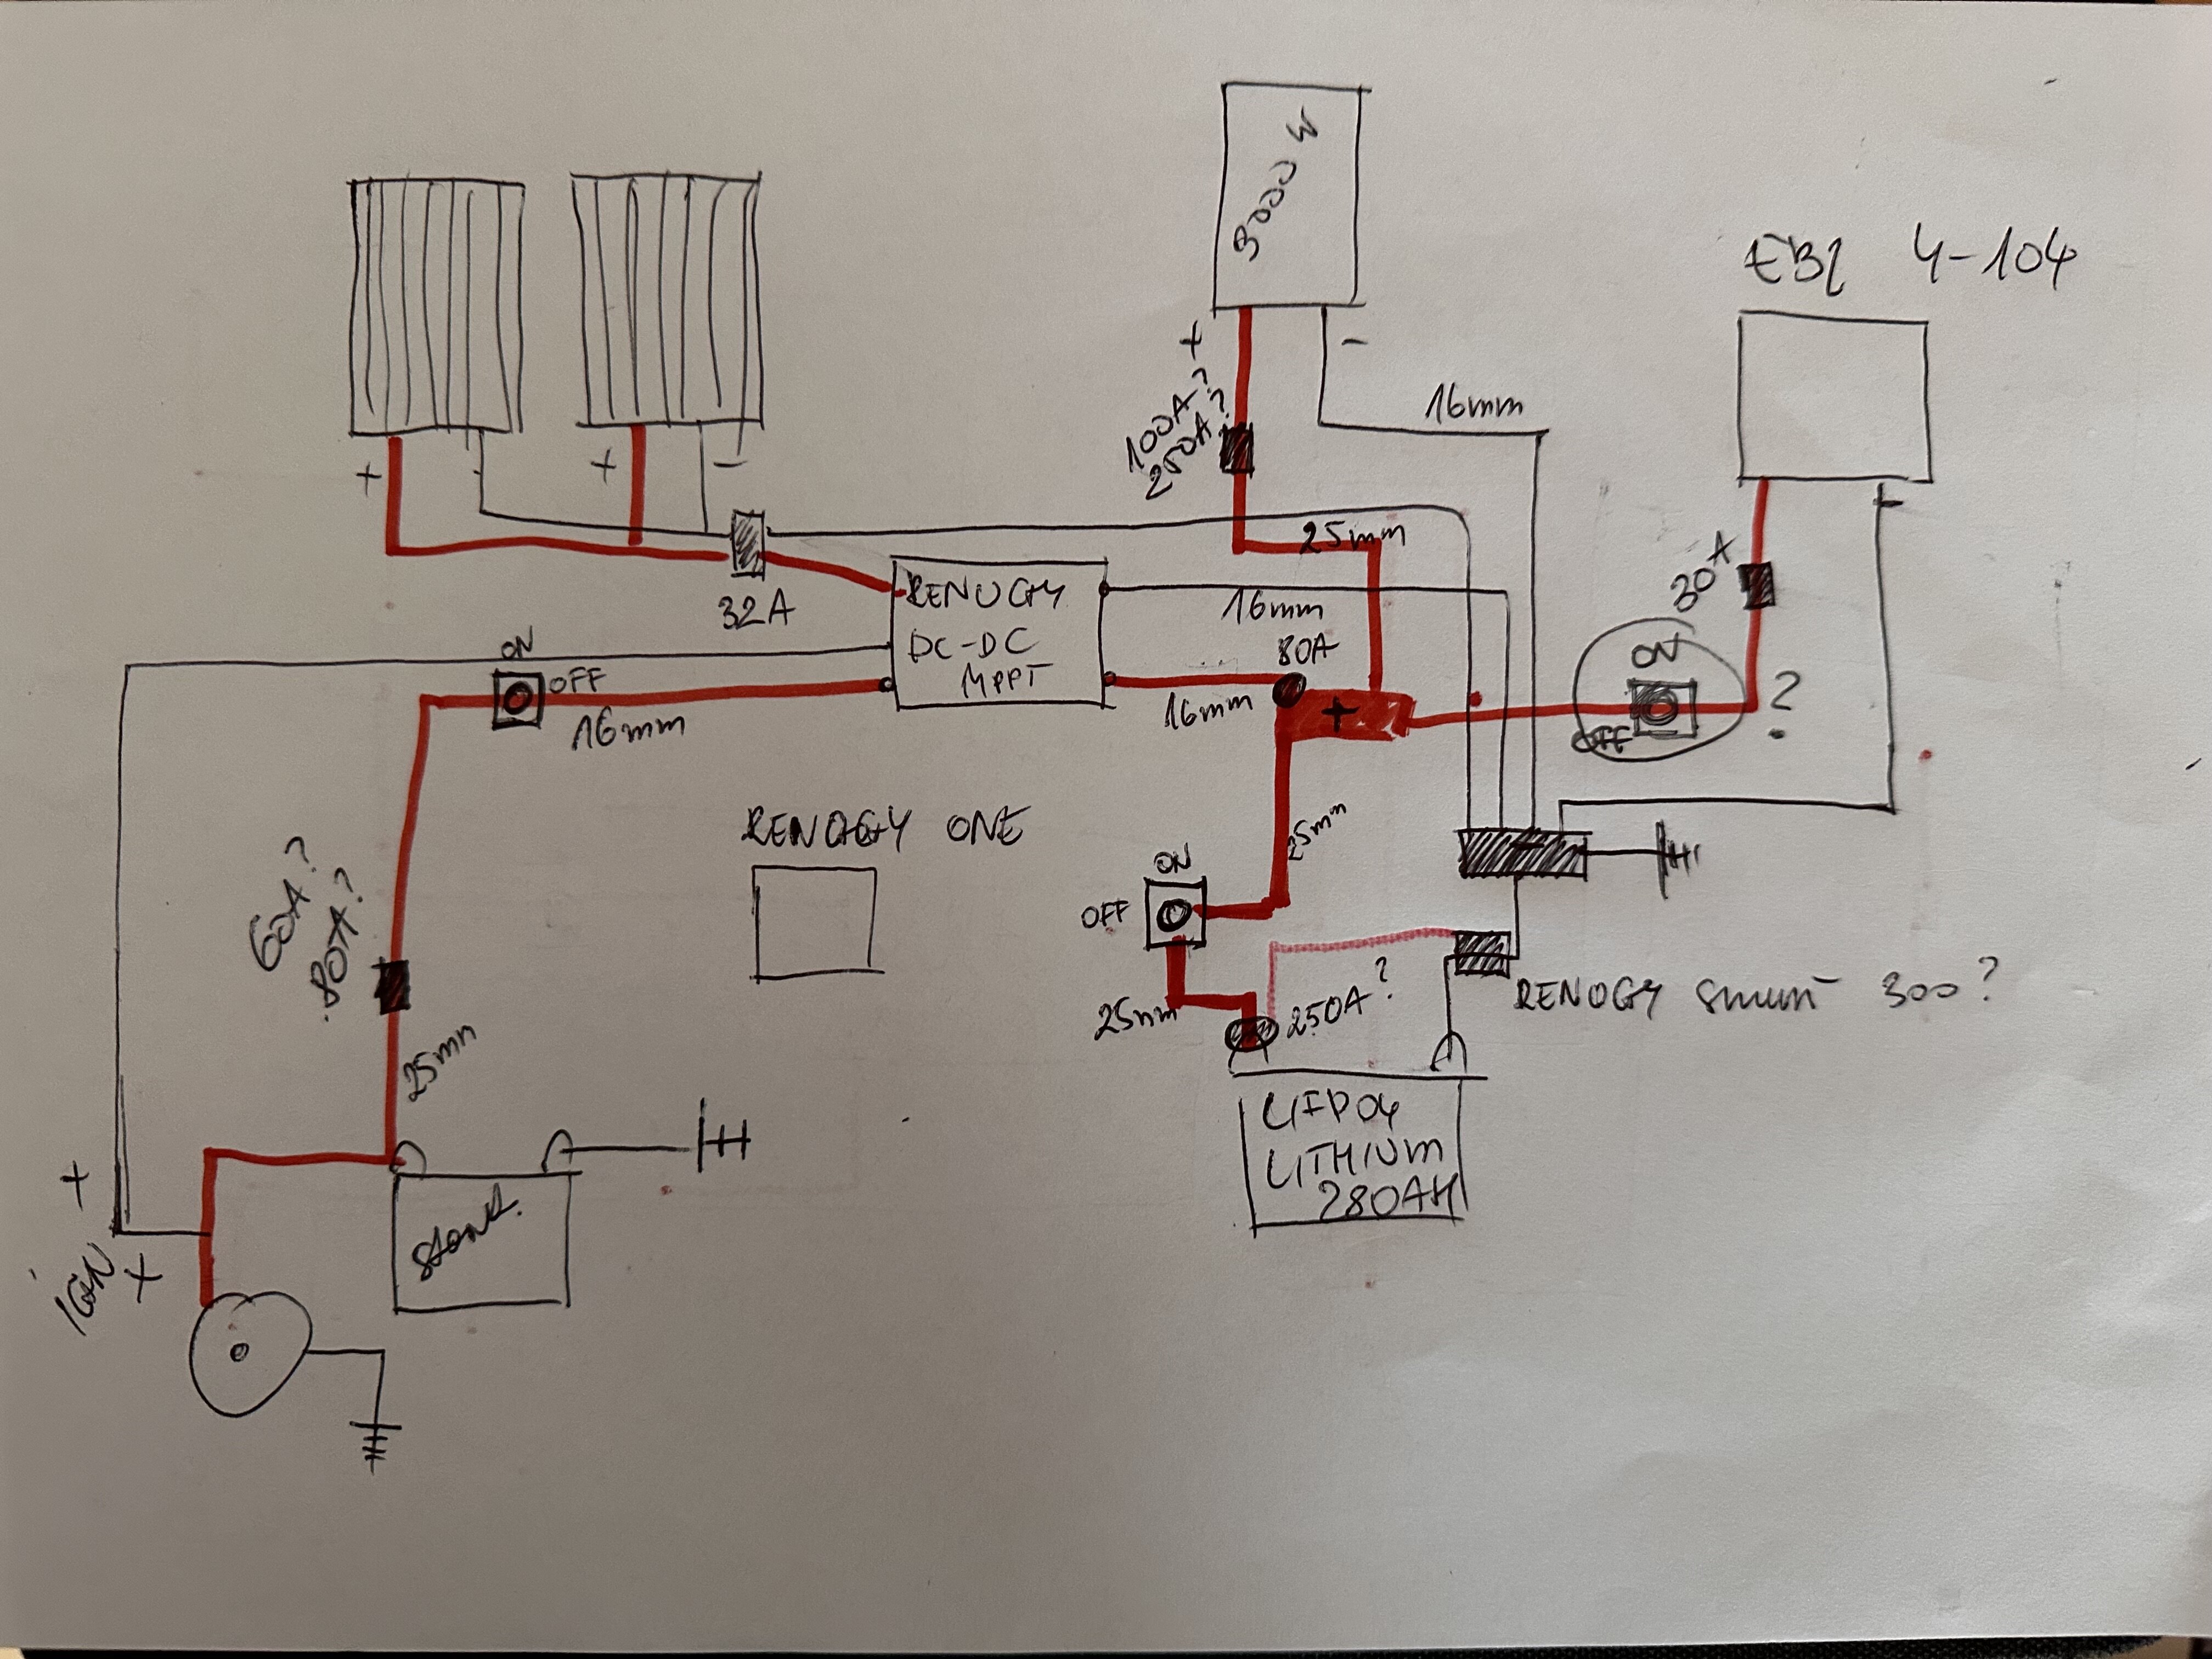 3000 W
EBL 4-104
+
-
+
-
+
-
100A?
250A?
16mm
25mm
30A
32A
RENOGY
DC-DC
MPPT
16mm
80A
16mm
+
ON
OFF
16mm
ON
OFF
?
RENOGY ONE
25mm
ON
OFF
60A?
80A?
25mm
250A?
RENOGY SHUNT 300?
25mm
LIFPO4
LITHIUM
280AH
+
IGN +